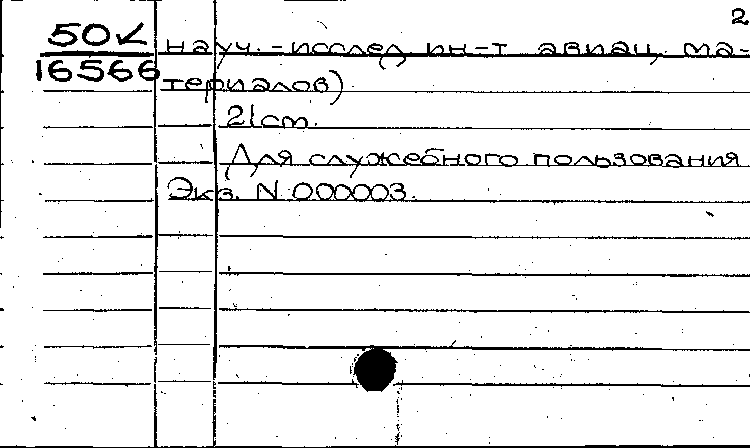 2
50✓ науч.-исслед. ин-т авиац. ма-
16566 териалов)
21см.
Для служебного пользования
Экз. N 000003.